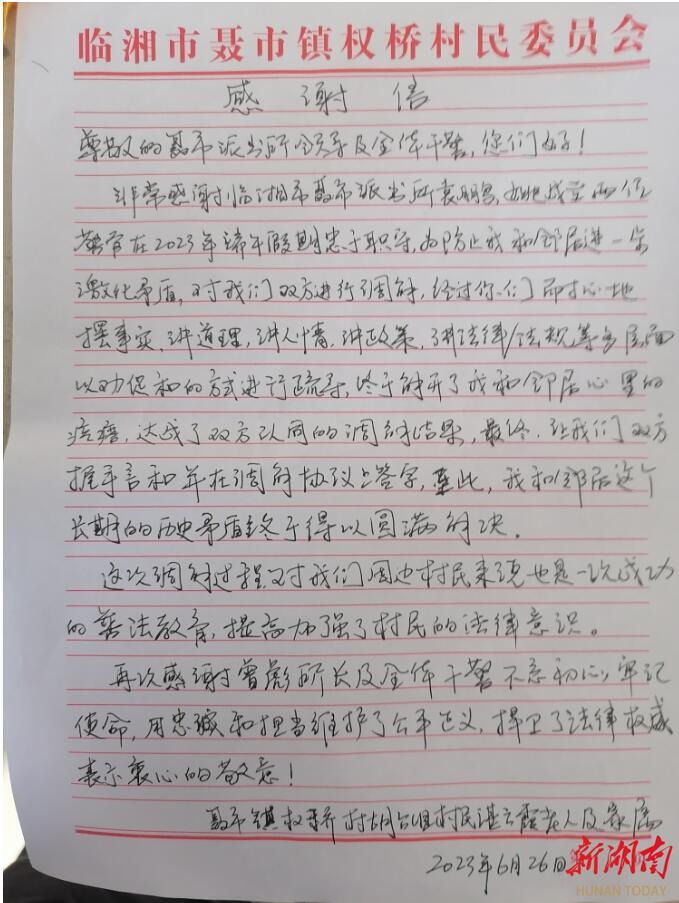 临湘市聂市镇权桥村民委员会
感谢信
尊敬的聂市派出所领导及全体干警,您们好!
非常感谢临湘市聂市派出所袁鹏昌,成立两位
警官在2023年端午假期忠于职守,为防止我和邻居进一步
激化矛盾,对我们双方进行调解,经过你们耐心地
摆事实、讲道理,讲人情、讲政策,讲法律/法规等多层面
以劝促和的方式进行疏导,终于解开了我和邻居心里的
疙瘩,达成了双方认同的调解结果,最终,让我们双方
握手言和并在调解协议上签字,至此,我和邻居这个
长期的历史矛盾终于得以圆满解决。
这次调解过程又对我们周边村民来说也是一次成功
的普法教育,提高加强了村民的法律意识。
再次感谢曾彪所长及全体干警不忘初心,牢记
使命,用忠诚和担当维护了公平正义,捍卫了法律权威
表示衷心的敬意!
聂市镇权桥村胡台组村民谌云霞老人及家属
2023年6月26日
新湖南
HUNAN TODAY